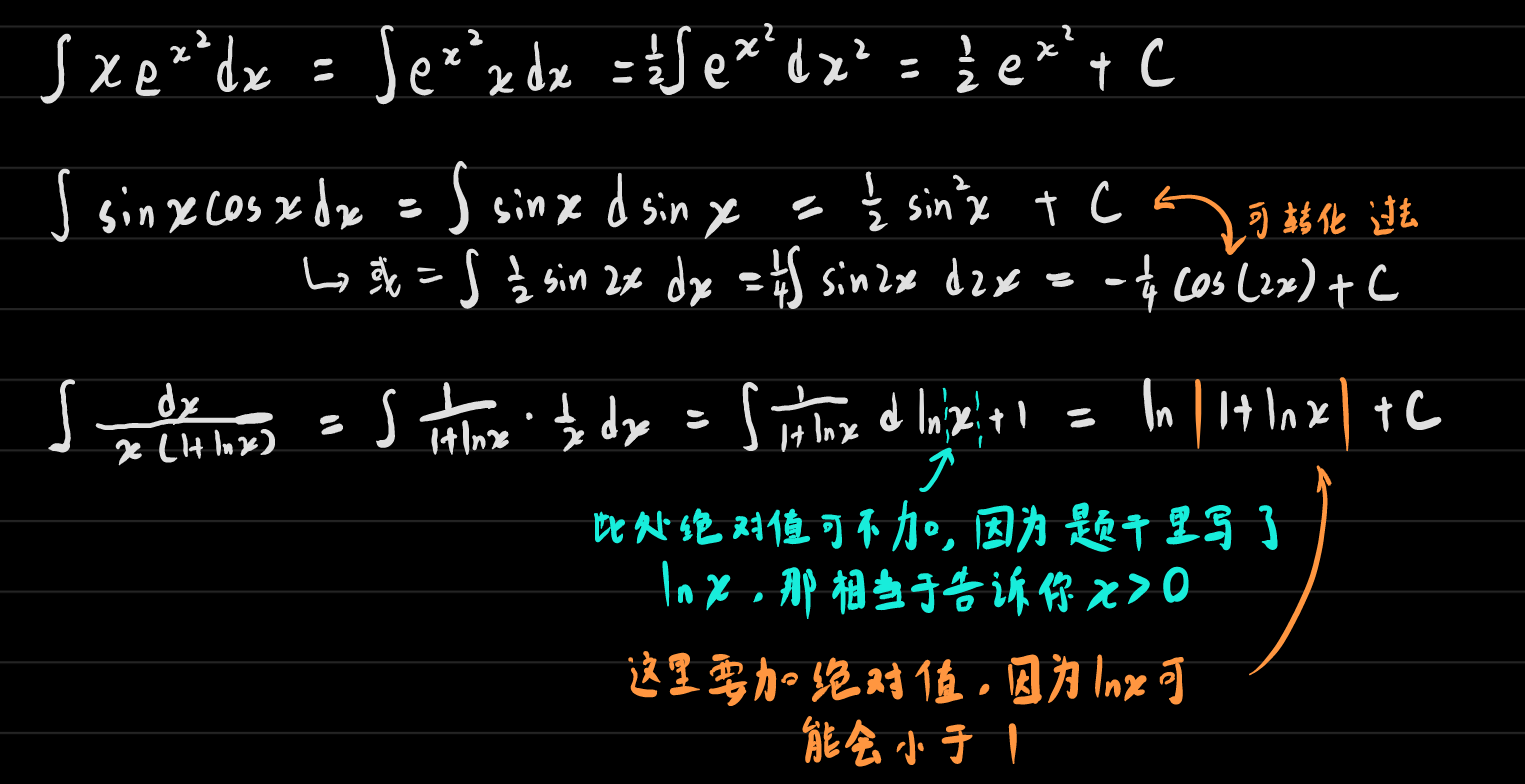 ∫ x e^{x²} dx = ∫ e^{x²} x dx = ½ ∫ e^{x²} dx² = ½ e^{x²} + C
∫ sin x cos x dx = ∫ sin x d sin x = ½ sin² x + C 可转化过去
↳ 或 = ∫ ½ sin 2x dx = ¼ ∫ sin 2x d2x = -¼ cos(2x) + C
∫ dx / x(1+ln x) = ∫ 1/(1+ln x) · 1/x dx = ∫ 1/(1+ln x) d ln¦x¦+1 = ln |1+ln x| + C
此处绝对值可不加。因为题干里写了
ln x。那相当于告诉你 x>0
这里要加绝对值。因为 ln x 可
能会小于 1